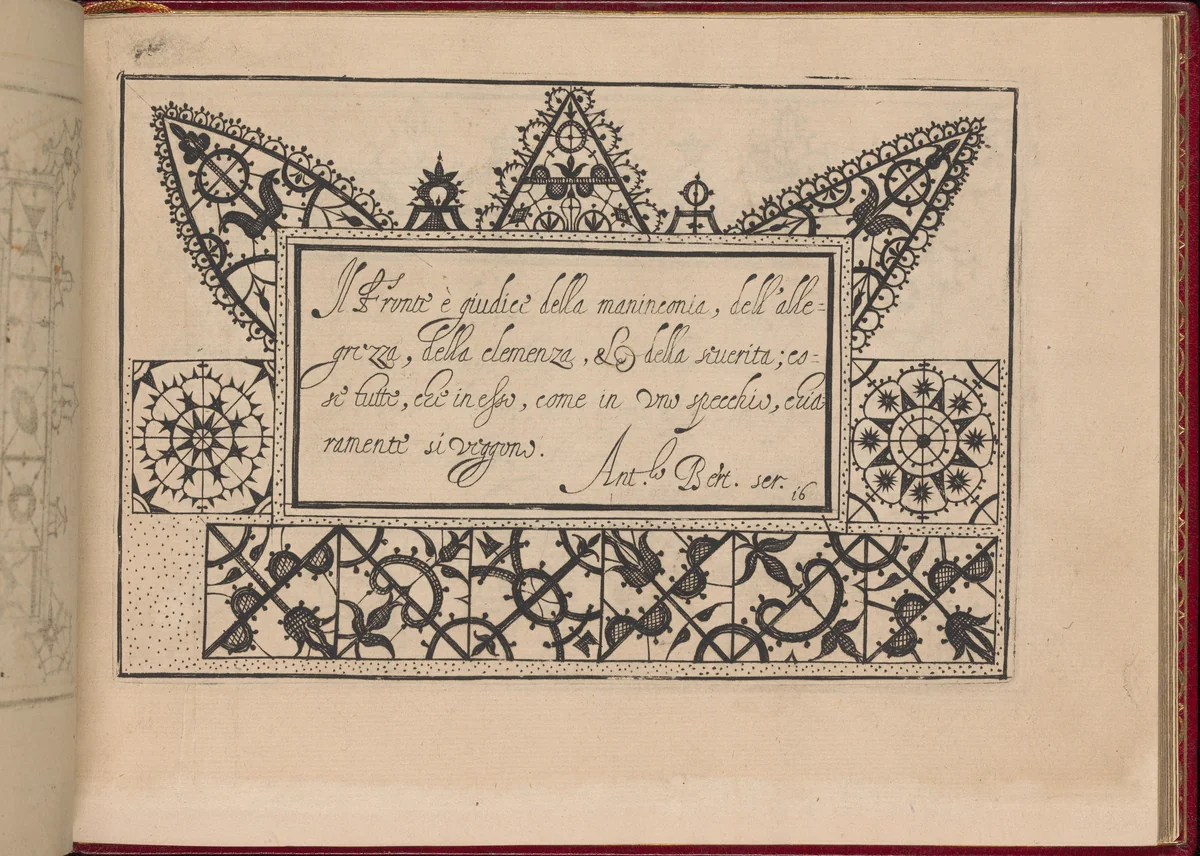 Il Fronte è giudice della maninconia, dell'alle-
grezza, della clemenza, & della seuerita; co-
se tutte, che in esso, come in uno specchio, chia
ramente si veggono.
Ant.lo Bert. scr.
16